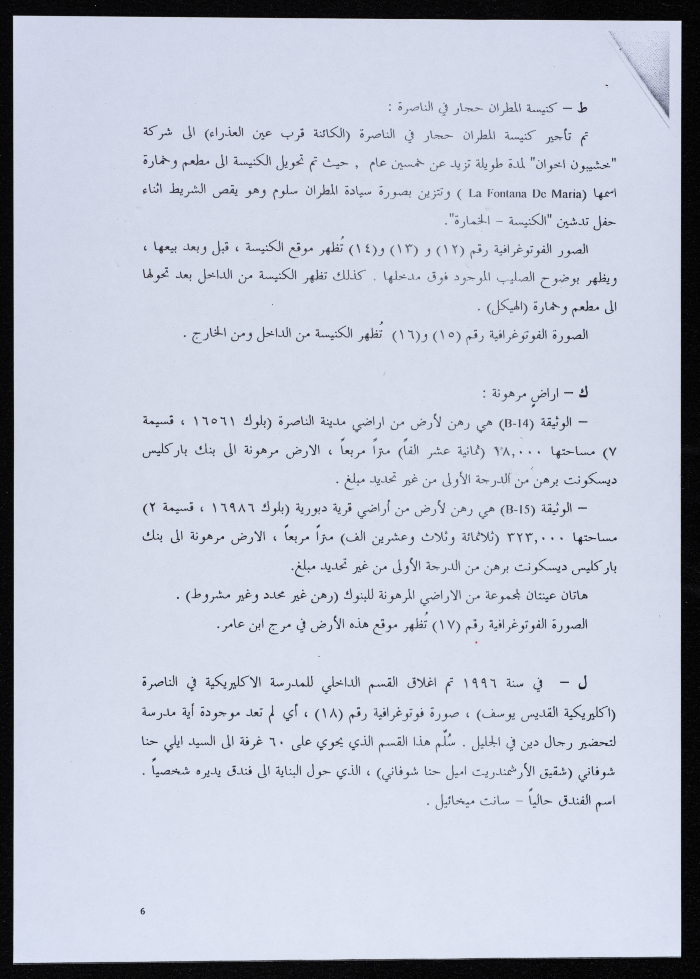 ط – كنيسة المطران حجار في الناصرة :
تم تأجير كنيسة المطران حجار في الناصرة (الكائنة قرب عين العذراء) الى شركة
"خشيبون اخوان" لمدة طويلة تزيد عن خمسين عام , حيث تم تحويل الكنيسة الى مطعم وخمارة
اسمها (La Fontana De Maria ) وتتزين بصورة سيادة المطران سلوم وهو يقص الشريط اثناء
حفل تدشين "الكنيسة – الخمارة".
الصور الفوتوغرافية رقم (١٢) و (١٣) و(١٤) تُظهر موقع الكنيسة ، قبل وبعد بيعها ،
ويظهر بوضوح الصليب الموجود فوق مدخلها . كذلك تظهر الكنيسة من الداخل بعد تحولها
الى مطعم وخمارة (الهيكل) .
الصورة الفوتوغرافية رقم (١٥) و(١٦) تُظهر الكنيسة من الداخل ومن الخارج .
ك – اراضٍ مرهونة :
– الوثيقة (B-14) هي رهن لأرض من اراضي مدينة الناصرة (بلوك ١٦٥٦١ ، قسيمة
٧) مساحتها ١٨,٠٠٠ (ثمانية عشر الفاً) متراً مربعاً ، الارض مرهونة الى بنك باركليس
ديسكونت برهن من الدرجة الأولى من غير تحديد مبلغ .
– الوثيقة (B-15) هي رهن لأرض من أراضي قرية دبورية (بلوك ١٦٩٨٦ ، قسيمة ٢)
مساحتها ٣٢٣,٠٠٠ (ثلاثمائة وثلاث وعشرين الف) متراً مربعاً ، الارض مرهونة الى بنك
باركليس ديسكونت برهن من الدرجة الأولى من غير تحديد مبلغ.
هاتان عينتان لمجموعة من الاراضي المرهونة للبنوك (رهن غير محدد وغير مشروط) .
الصورة الفوتوغرافية رقم (١٧) تُظهر موقع هذه الأرض في مرج ابن عامر.
ل – في سنة ١٩٩٦ تم اغلاق القسم الداخلي للمدرسة الاكليريكية في الناصرة
(اكليريكية القديس يوسف) ، صورة فوتوغرافية رقم (١٨) ، أي لم تعد موجودة أية مدرسة
لتحضير رجال دين في الجليل . سُلّم هذا القسم الذي يحوي على ٦٠ غرفة الى السيد ايلي حنا
شوفاني (شقيق الأرشمندريت اميل حنا شوفاني) ، الذي حول البناية الى فندق يديره شخصياً .
اسم الفندق حالياً – سانت ميخائيل .
6